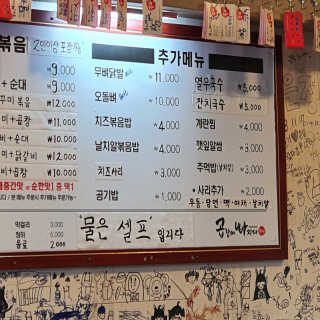 볶음 2인이상 포장가능
₩9,000
+순대 ₩9,000
꾸미 볶음 ₩12,000
미+곱창 ₩11,000
비+순대 ₩10,000
미+닭갈비 ₩12,000
비+곱창 ₩10,000
중간맛 or 순한맛] 중 택1
막걸리 3,000
음료 2,000
추가메뉴
무뼈닭발 11,000
오돌뼈 ₩10,000
치즈볶음밥 ₩4,000
날치알볶음밥 ₩4,000
치즈사리 ₩3,000
공기밥 ₩1,000
열무국수 ₩5,000
잔치국수 ₩5,000
계란찜 ₩4,000
깻잎쌈 ₩3,000
주먹밥(날치알) ₩3,000
•사리추가 ₩2,000
우동·당면·떡·야채·날치알
'물은 셀프' 입니다